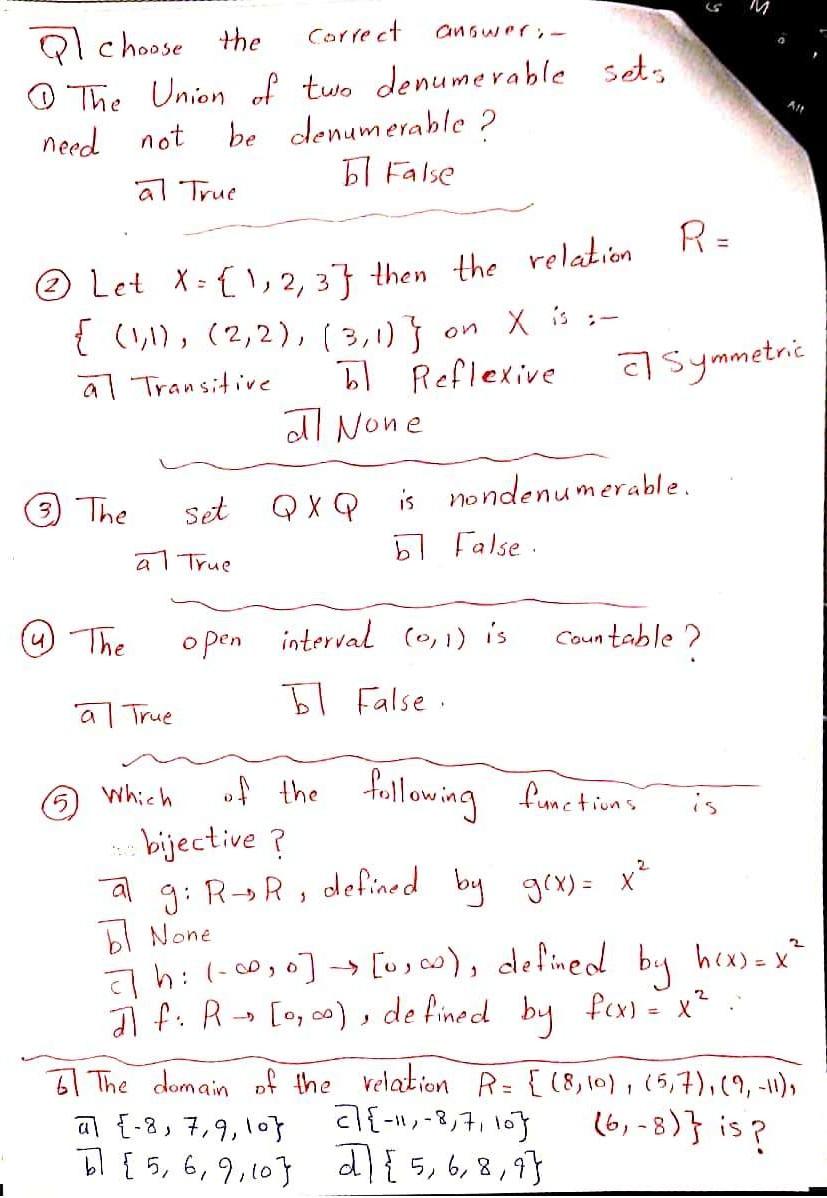 Q] choose the Correct answer:-
① The Union of two denumerable sets
need not be denumerable?
a] True b] False
② Let X = {1, 2, 3} then the relation R =
{ (1,1), (2,2), (3,1) } on X is :-
a] Transitive b] Reflexive c] Symmetric
d] None
③ The set Q X Q is nondenumerable.
a] True b] False.
④ The open interval (0,1) is Countable?
a] True b] False.
⑤ Which of the following functions is
bijective?
a] g: R→R, defined by g(x) = x²
b] None
c] h: (-∞, 0] → [0, ∞), defined by h(x) = x²
d] f: R → [0, ∞), defined by f(x) = x²
6] The domain of the relation R = { (8,10), (5,7), (9,-11),
(6,-8)} is?
a] {-8, 7, 9, 10} c] {-11, -8, 7, 10}
b] {5, 6, 9, 10} d] {5, 6, 8, 9}